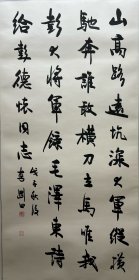 山高路遠坑深大軍縱橫
馳奔誰敢橫刀立馬唯我
彭大將軍錄毛澤東詩
給彭德懷同志